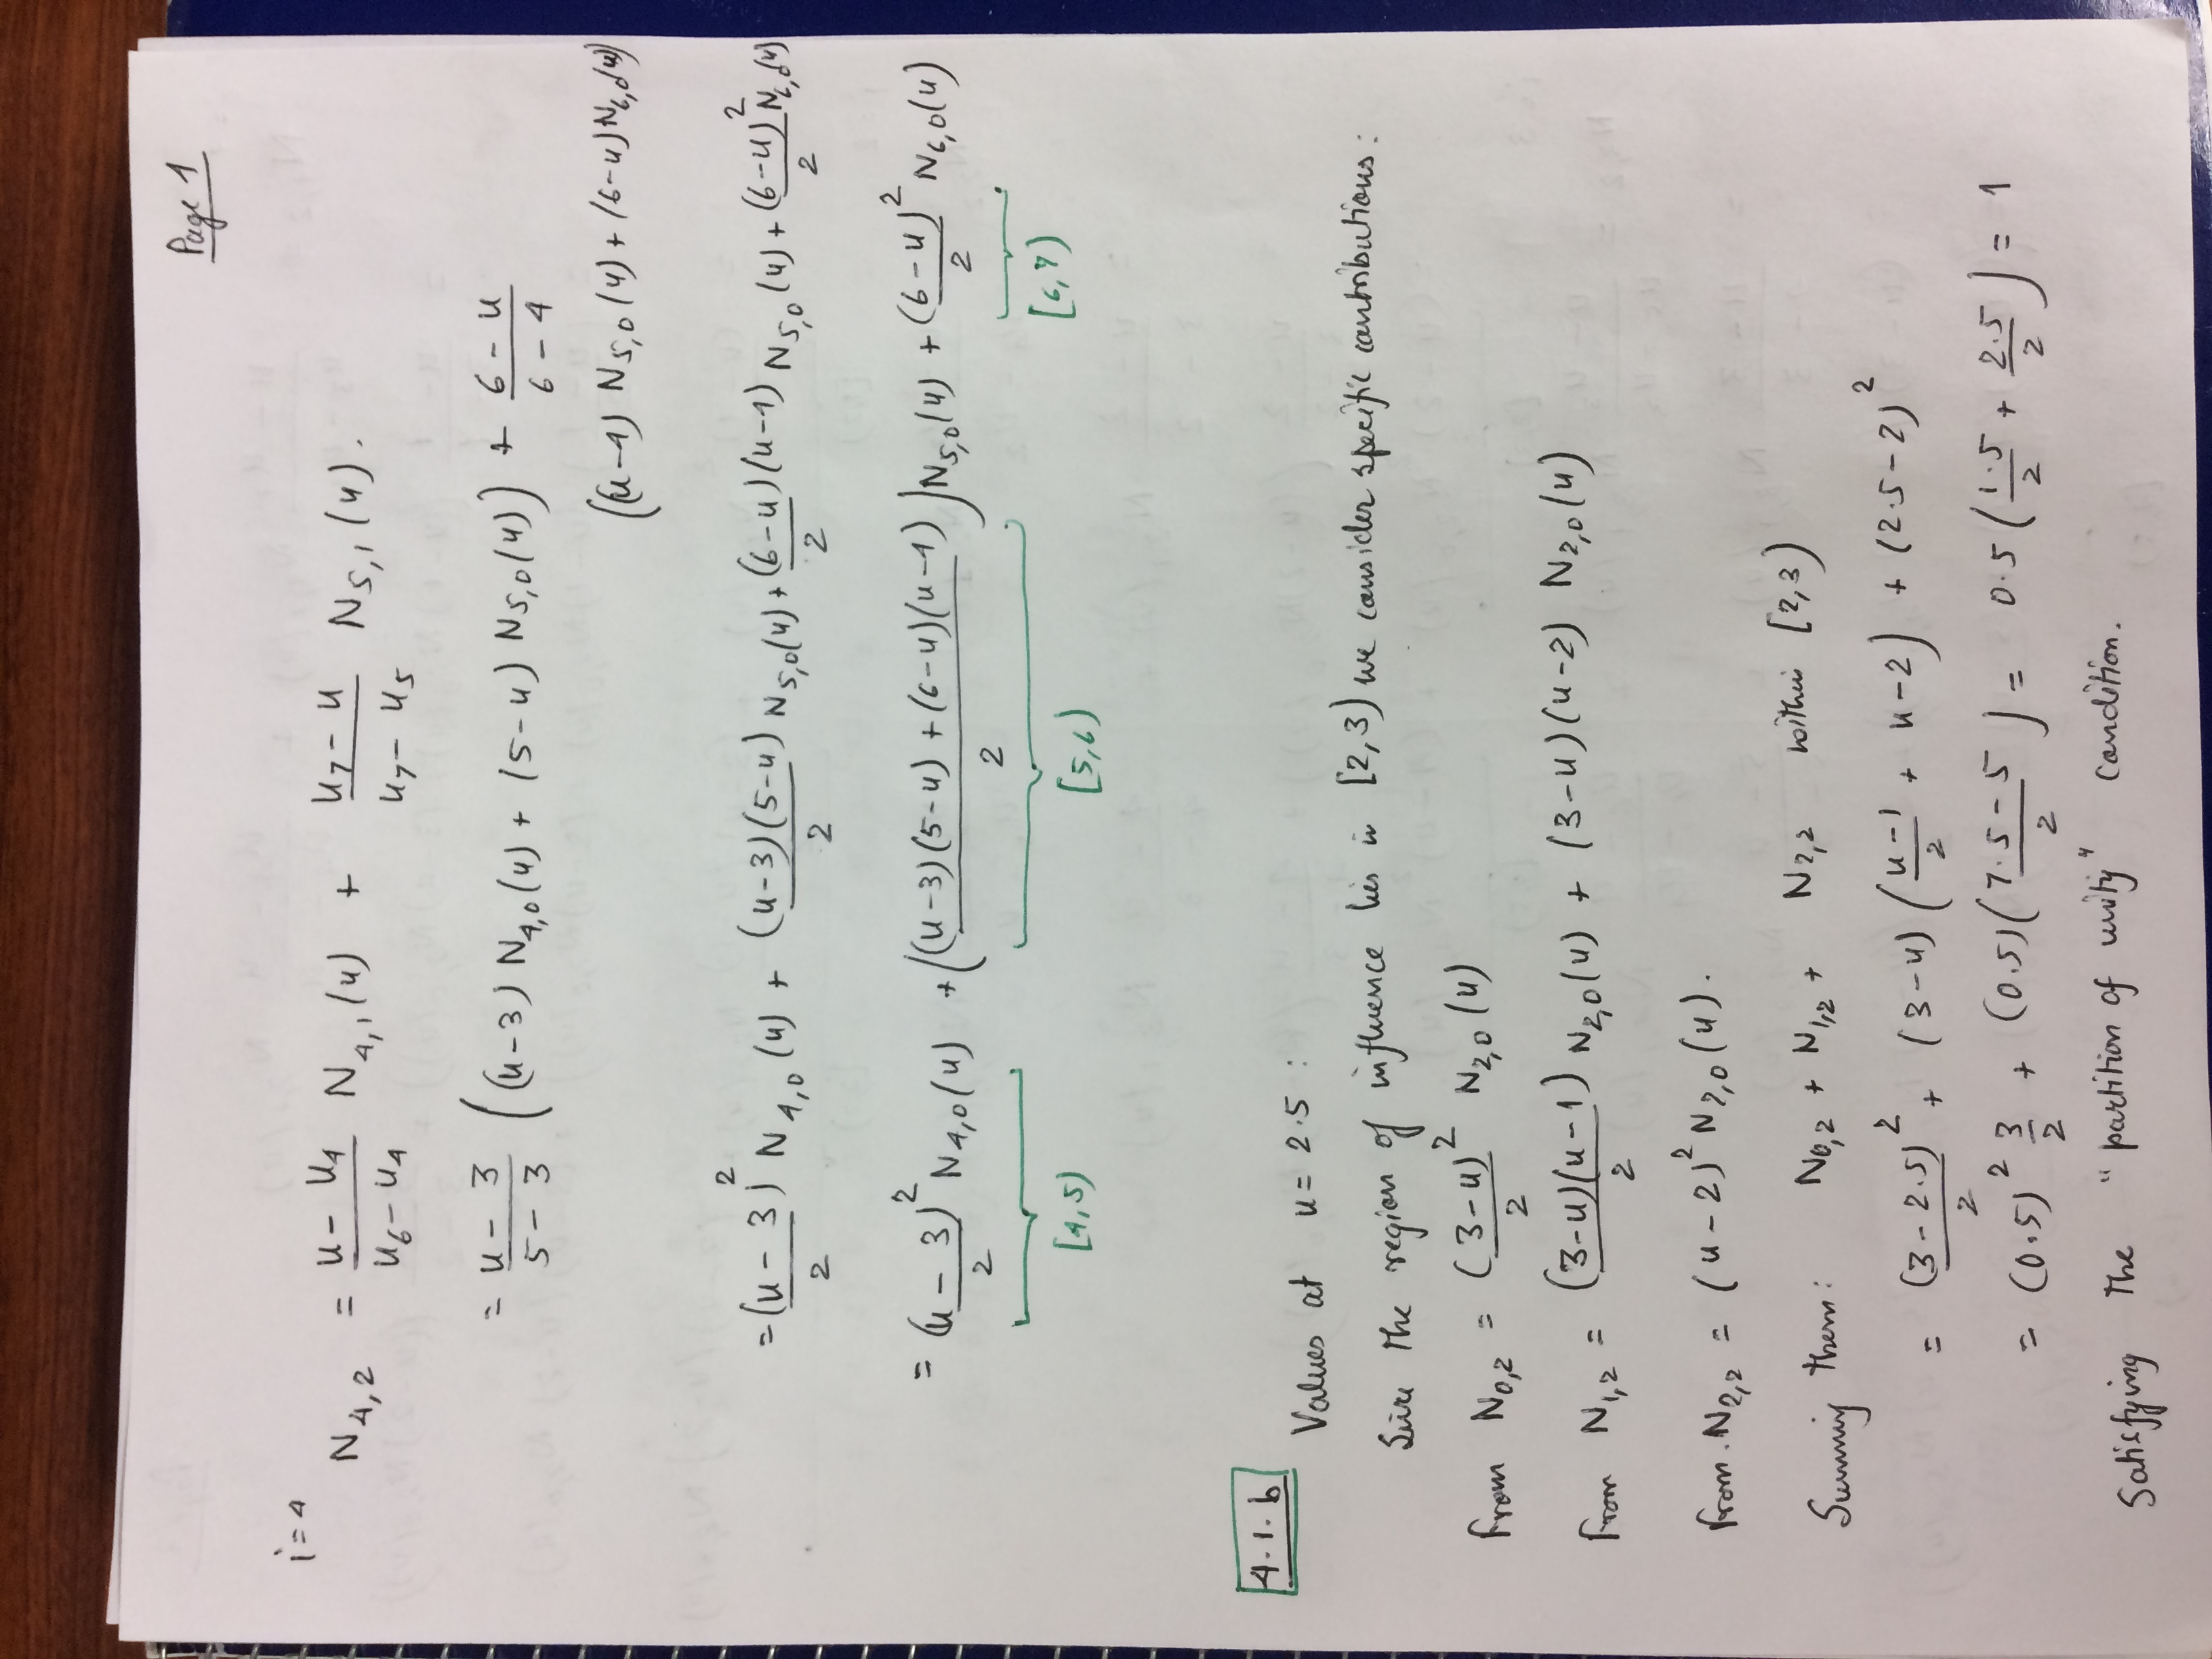 Page 1
i=4
N₄,₂ = (u - u₄)/(u₆ - u₄) N₄,₁(u) + (u₇ - u)/(u₇ - u₅) N₅,₁(u).
= (u - 3)/(5 - 3) ((u-3) N₄,₀(u) + (5-u) N₅,₀(u)) + (6 - u)/(6 - 4)
((u-4) N₅,₀(u) + (6-u) N₆,₀(u))
= (u - 3)²/2 N₄,₀(u) + (u-3)(5-u)/2 N₅,₀(u) + (6-u)/2 (u-4) N₅,₀(u) + (6-u)²/2 N₆,₀(u)
= (u - 3)²/2 N₄,₀(u) + ((u-3)(5-u) + (6-u)(u-4)/2) N₅,₀(u) + (6-u)²/2 N₆,₀(u)
[4,5) [5,6) [6,7)
4.1.b
Values at u = 2.5 :
Since the region of influence lies in [2,3) we consider specific contributions :
From N₀,₂ = (3-u)²/2 N₂,₀(u)
From N₁,₂ = (3-u)(u-1)/2 N₂,₀(u) + (3-u)(u-2) N₂,₀(u)
From. N₂,₂ = (u-2)² N₂,₀(u).
Summing them: N₀,₂ + N₁,₂ + N₂,₂ within [2,3)
= (3-2.5)²/2 + (3-u) ((u-1)/2 + u-2) + (2.5-2)²
= (0.5)² 3/2 + (0.5) ((7.5-5)/2) = 0.5 (1.5/2 + 2.5/2) = 1
Satisfying the "partition of unity" condition.